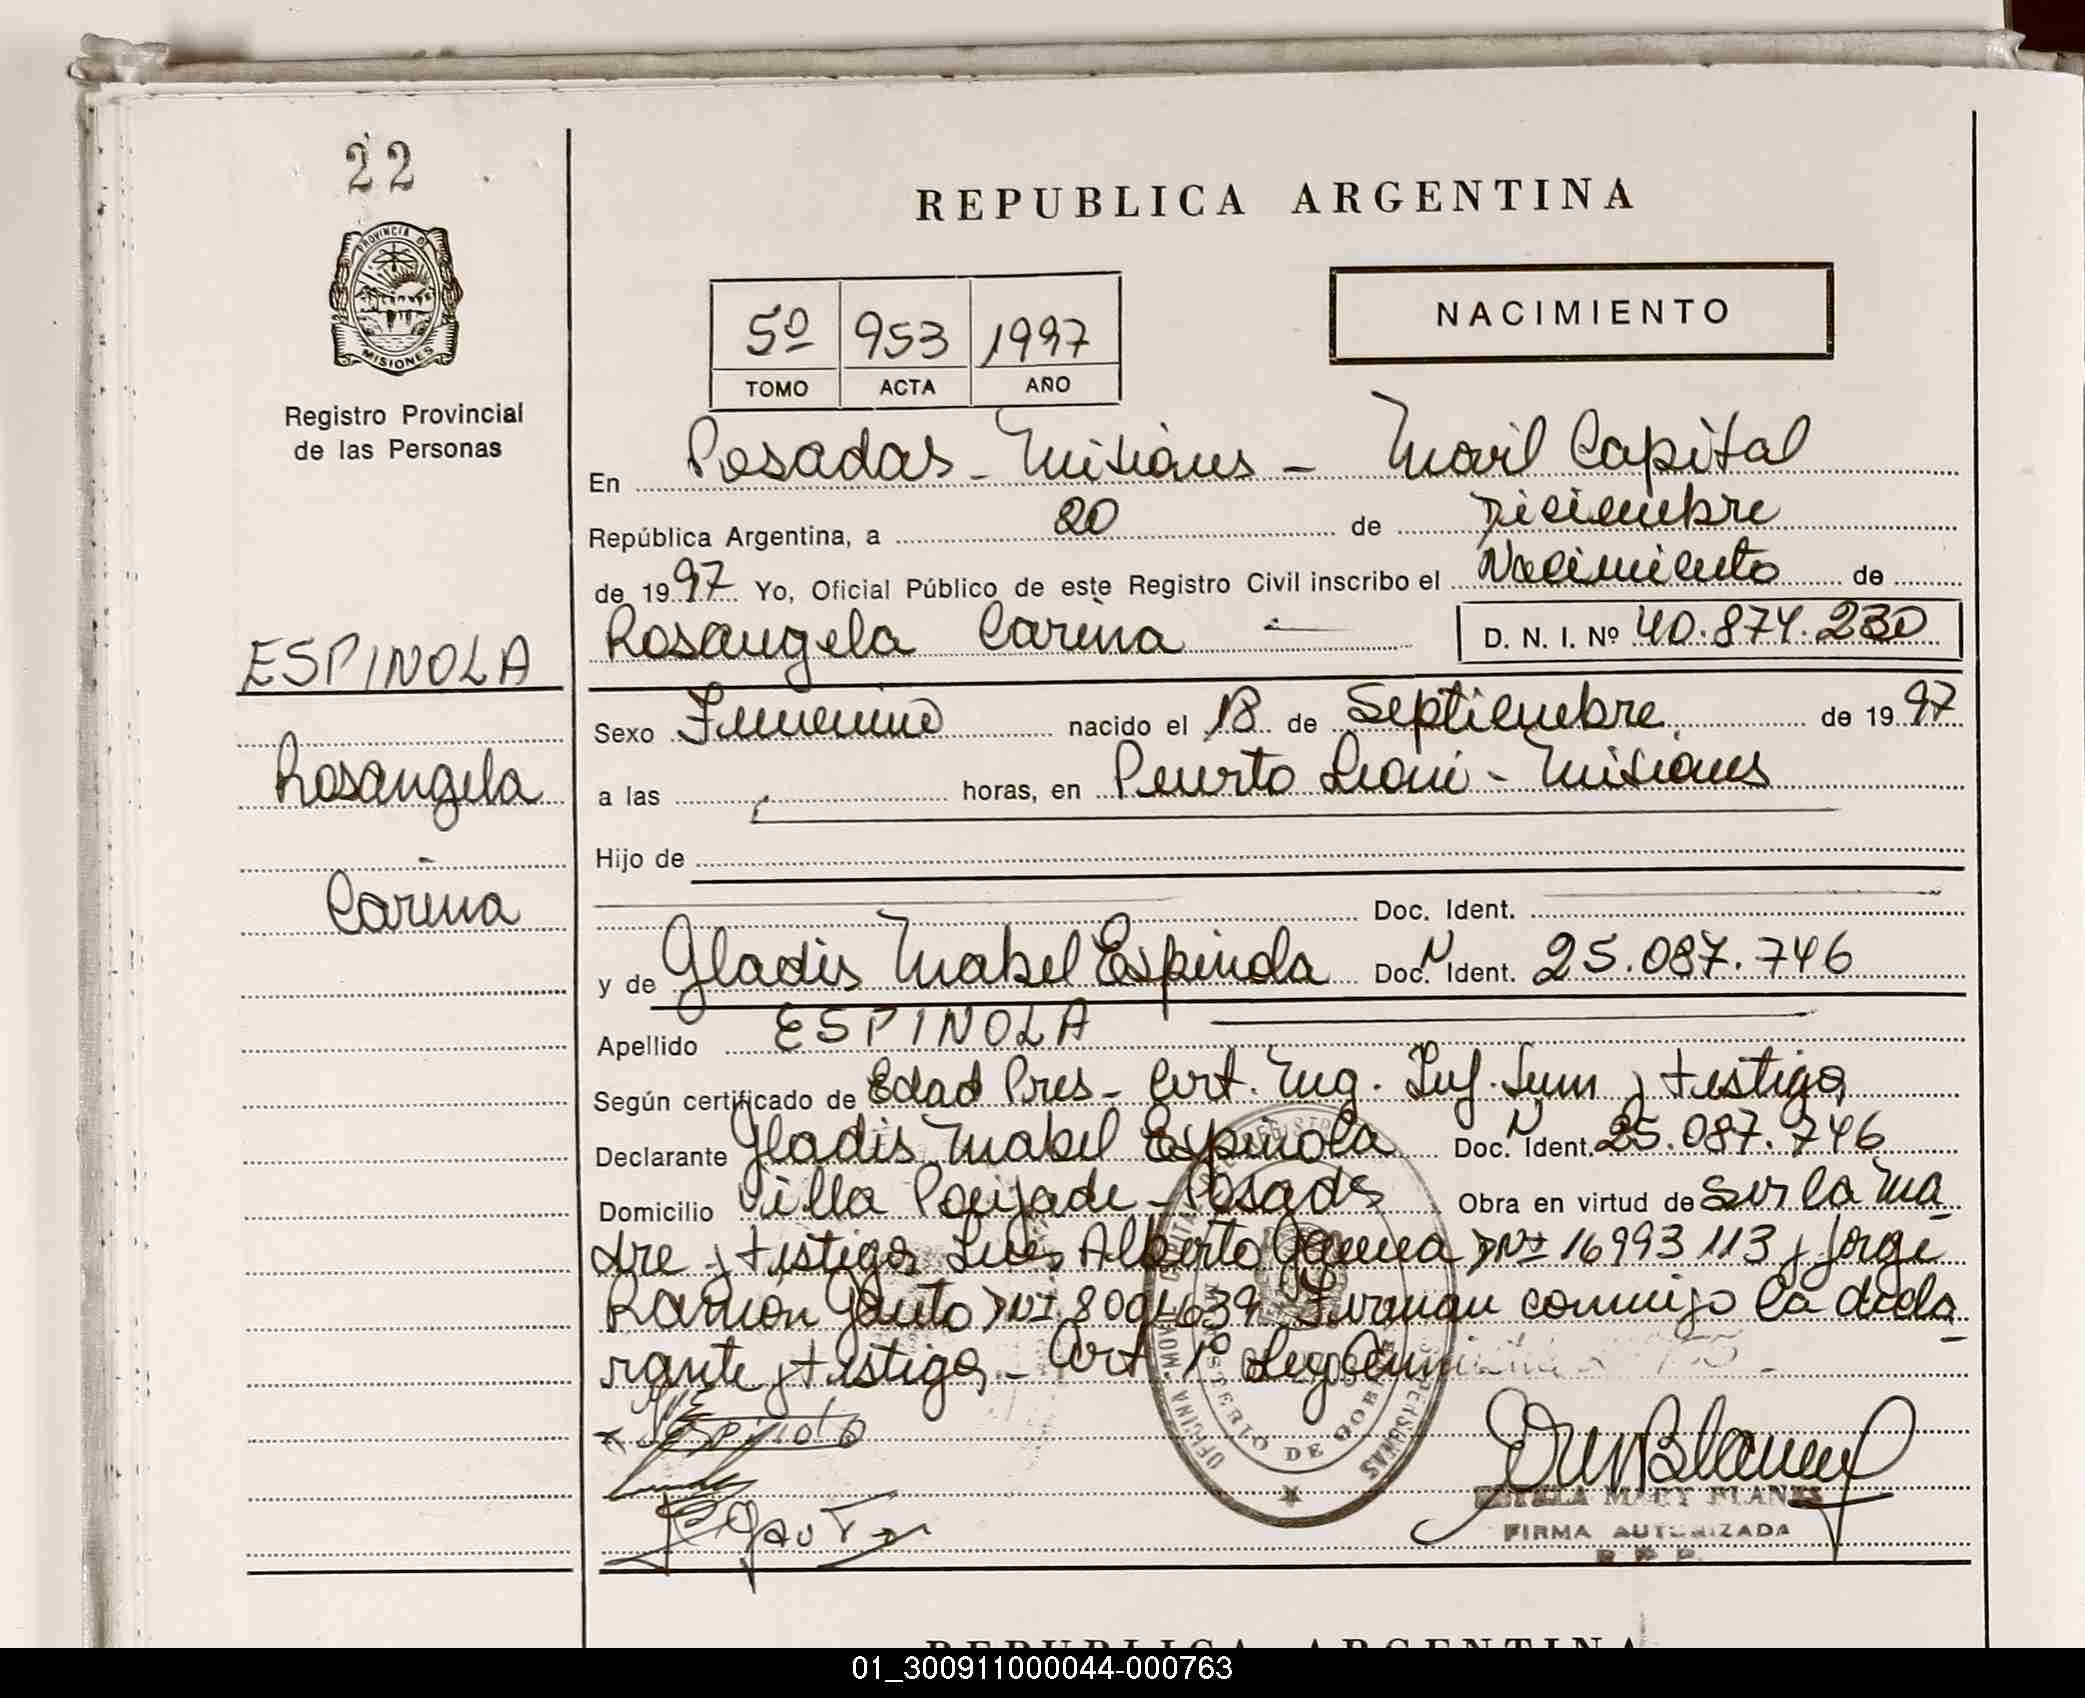 22
REPUBLICA ARGENTINA
PROVINCIA DE
MISIONES
Registro Provincial
de las Personas
5º 953 1997
TOMO ACTA AÑO
NACIMIENTO
En Posadas - Misiones - Movil Capital
República Argentina, a 20 de Diciembre
de 1997 Yo, Oficial Público de este Registro Civil inscribo el Nacimiento de
Rosangela Carina D. N. I. Nº 40.874.230
ESPINOLA
Rosangela
Carina
Sexo Femenino nacido el 18 de Septiembre de 1997
a las horas, en Puerto Leoni - Misiones
Hijo de
Doc. Ident.
y de Gladis Mabel Espinola Doc. Ident. 25.087.746
Apellido ESPINOLA
Según certificado de Edad Pres - Cert. Neg. Inf. Sum y testigos
Declarante Gladis Mabel Espinola Doc. Ident. 25.087.746
Domicilio Villa Poujade - Posadas Obra en virtud de ser la ma
dre y testigos Luis Alberto DNI 16993113 y Jorge
Ramón Gauto DNI 8004639 Firman conmigo la decla
rante y testigos - Cert. 1º Ley
Espinola
Gauto
OFICINA MOVIL CAPITAL
MINISTERIO DE GOBIERNO
ESTELA MARY PLANES
FIRMA AUTORIZADA
R. P. P.
REPUBLICA ARGENTINA
01_300911000044-000763